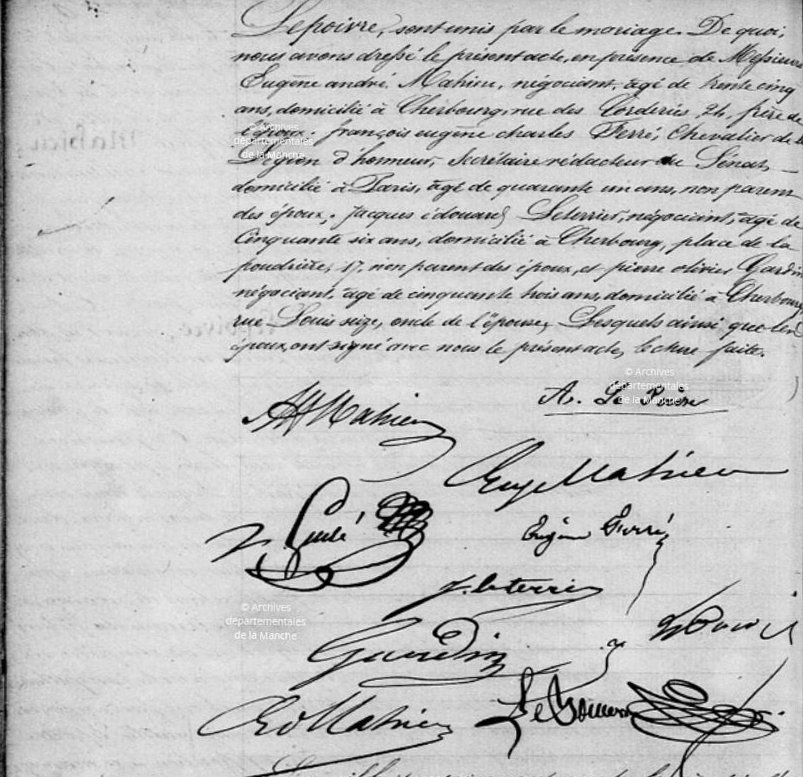 Lepoivre, sont unis par le mariage. De quoi,
nous avons dressé le présent acte, en présence de Messieurs
Eugène andré Mahieu, négociant, âgé de trente cinq
ans, domicilié à Cherbourg, rue des Corderies, 24, frère de
l'époux; françois eugène charles Ferré, Chevalier de la
Légion d'honneur, Secrétaire rédacteur au Sénat, —
domicilié à Paris, âgé de quarante un ans, non parent
des époux; Jacques édouard Leterrier, négociant, âgé de
Cinquante six ans, domicilié à Cherbourg, place de la
poudrière, 17, non parent des époux, et pierre olivier Gardin
négociant, âgé de cinquante trois ans, domicilié à Cherbourg,
rue Louis seize, oncle de l'épouse; Lesquels ainsi que les
époux, ont signé avec nous le présent acte, lecture faite.
A. Le Poivre
Mahieu
Eug Mahieu
Eugène Ferré
J. Leterrier
Gardin
Mahieu
© Archives
départementales
de la Manche
© Archives
départementales
de la Manche
© Archives
départementales
de la Manche